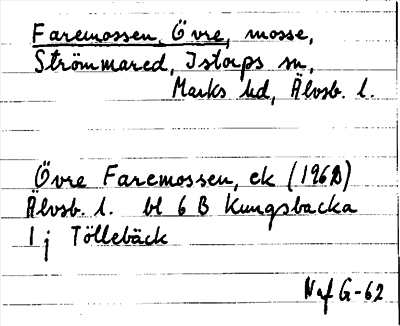 Faremossen, Övre, mosse,
Strömmared, Istorps sn,
Marks hd, Älvsb. l.
Övre Faremossen, ek (1962)
Älvsb. l. bl 6 B Kungsbacka
1 j Töllebäck
Naf G-62